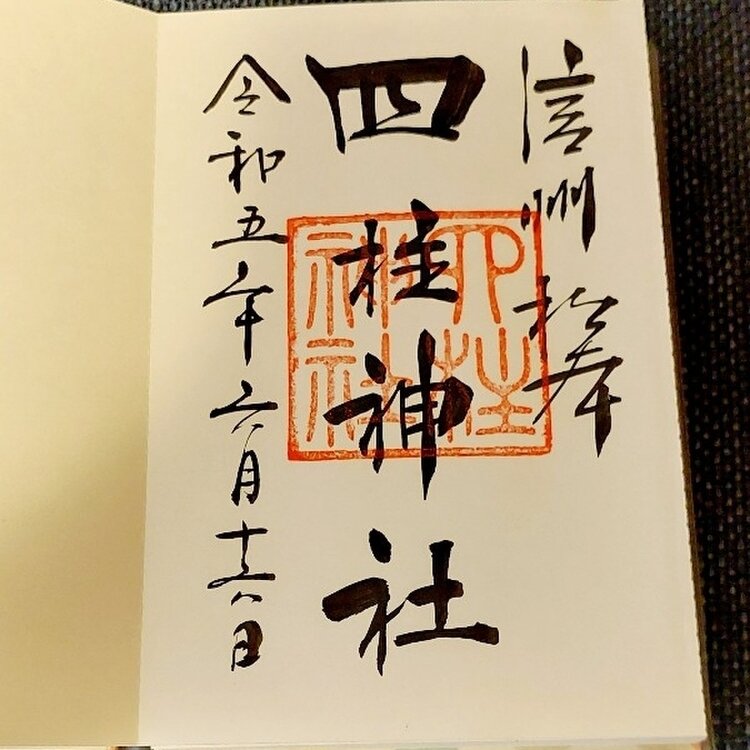 信州 松本
四柱神社
令和五年六月十六日
四柱
神社